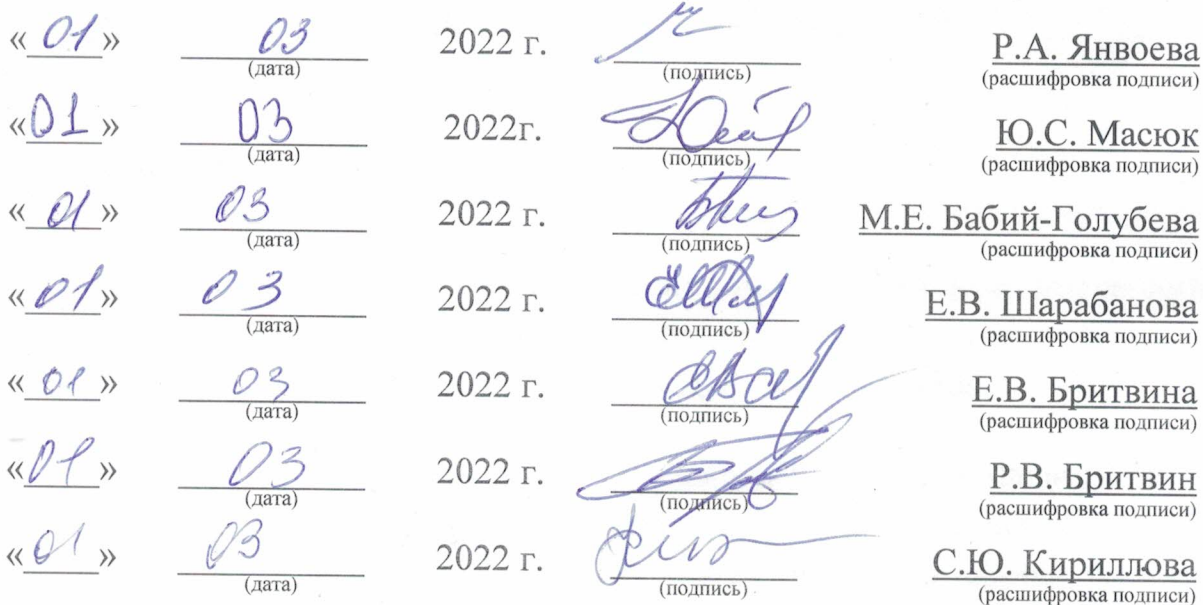 «01» 03 2022 г. Р.А. Янвоева
(дата) (подпись) (расшифровка подписи)
«01» 03 2022г. Ю.С. Масюк
(дата) (подпись) (расшифровка подписи)
«01» 03 2022 г. М.Е. Бабий-Голубева
(дата) (подпись) (расшифровка подписи)
«01» 03 2022 г. Е.В. Шарабанова
(дата) (подпись) (расшифровка подписи)
«01» 03 2022 г. Е.В. Бритвина
(дата) (подпись) (расшифровка подписи)
«01» 03 2022 г. Р.В. Бритвин
(дата) (подпись) (расшифровка подписи)
«01» 03 2022 г. С.Ю. Кириллова
(дата) (подпись) (расшифровка подписи)